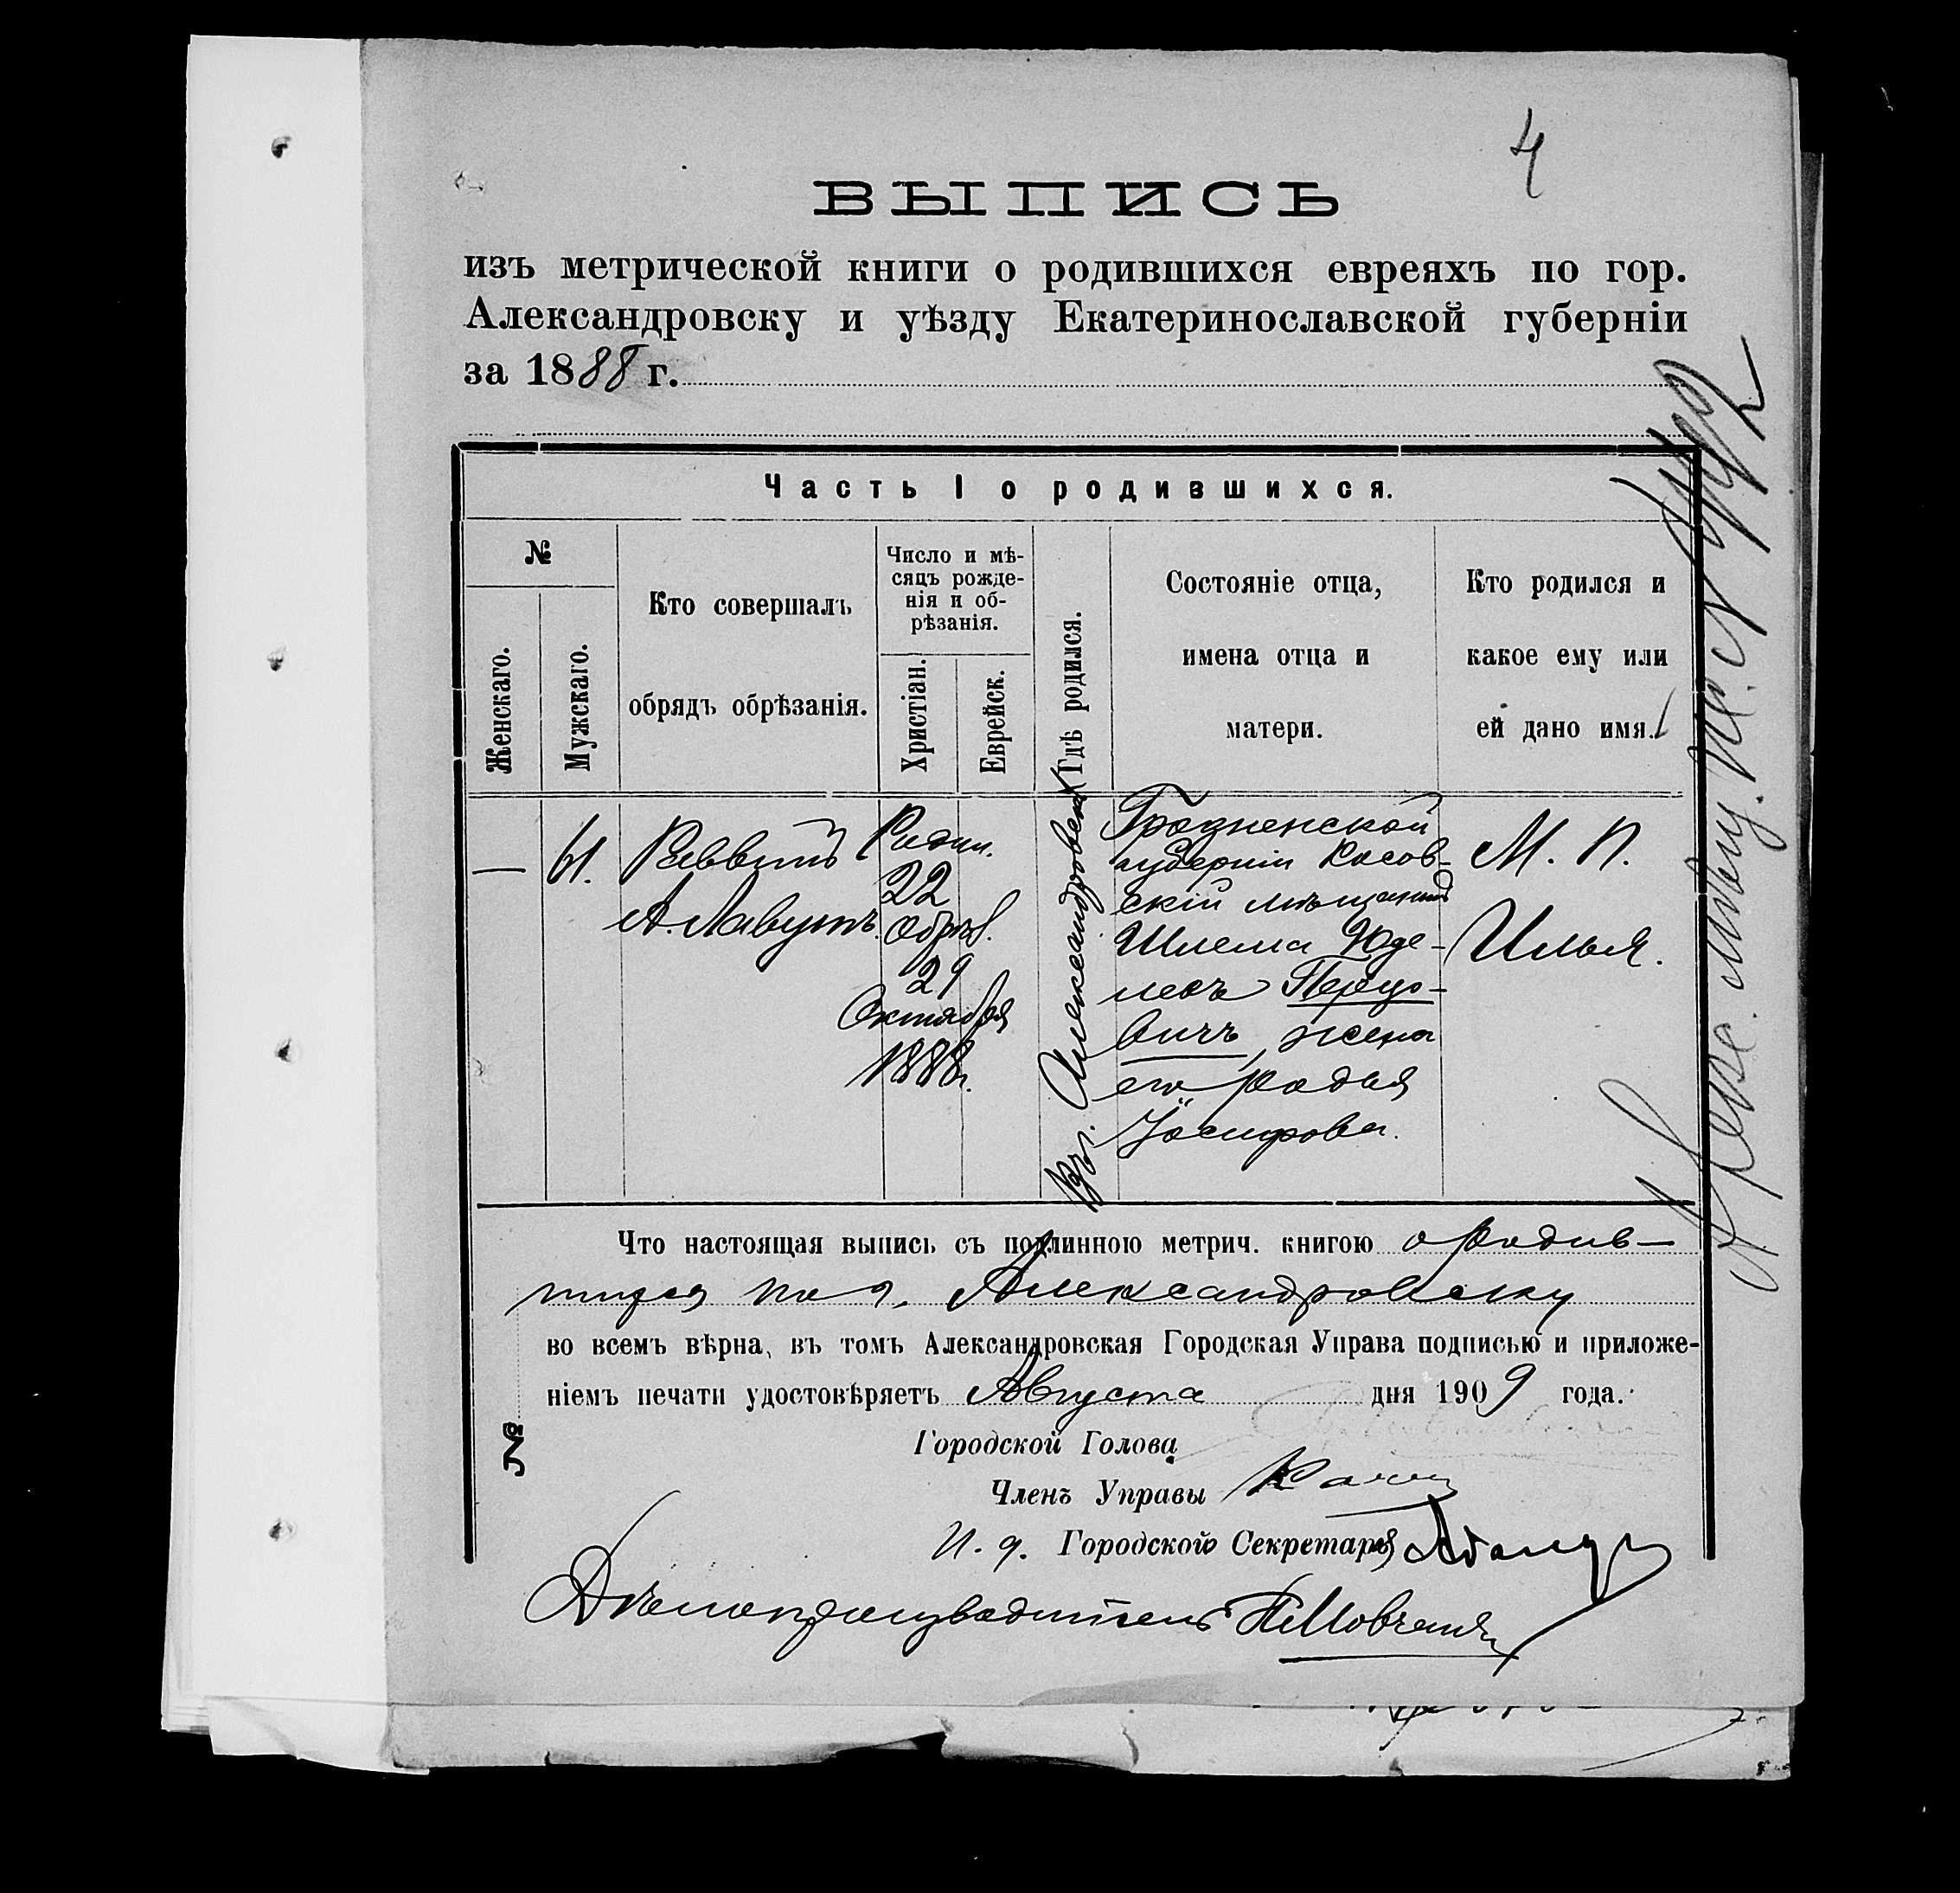 4
ВЫПИСЬ
изъ метрической книги о родившихся евреяхъ по гор.
Александровску и уѣзду Екатеринославской губерніи
за 1888 г.
Часть I о родившихся.
№
Женскаго.
Мужскаго.
Кто совершалъ
обрядъ обрѣзанія.
Число и мѣ-
сяцъ рожде-
нія и об-
рѣзанія.
Христіан.
Еврейск.
Гдѣ родился.
Состояніе отца,
имена отца и
матери.
Кто родился и
какое ему или
ей дано имя.
—
61.
Раввинъ
А. Лавутъ.
Родил.
22
Обрѣз.
29
Октября
1888 г.
Въ г. Александровскѣ
Гродненской
губерніи Косов-
скій мѣщанинъ
Шлема Юде-
левъ Перцо-
вичъ, жена
его Родья
Іосифова.
М. П.
Илья.
Что настоящая выпись съ подлинною метрич. книгою о родив-
шихся по г. Александровску
во всемъ вѣрна, въ томъ Александровская Городская Управа подписью и приложе-
ніемъ печати удостовѣряетъ Августа дня 1909 года.
№
Городской Голова
Членъ Управы
И. д. Городского Секретаря
Дѣлопроизводитель